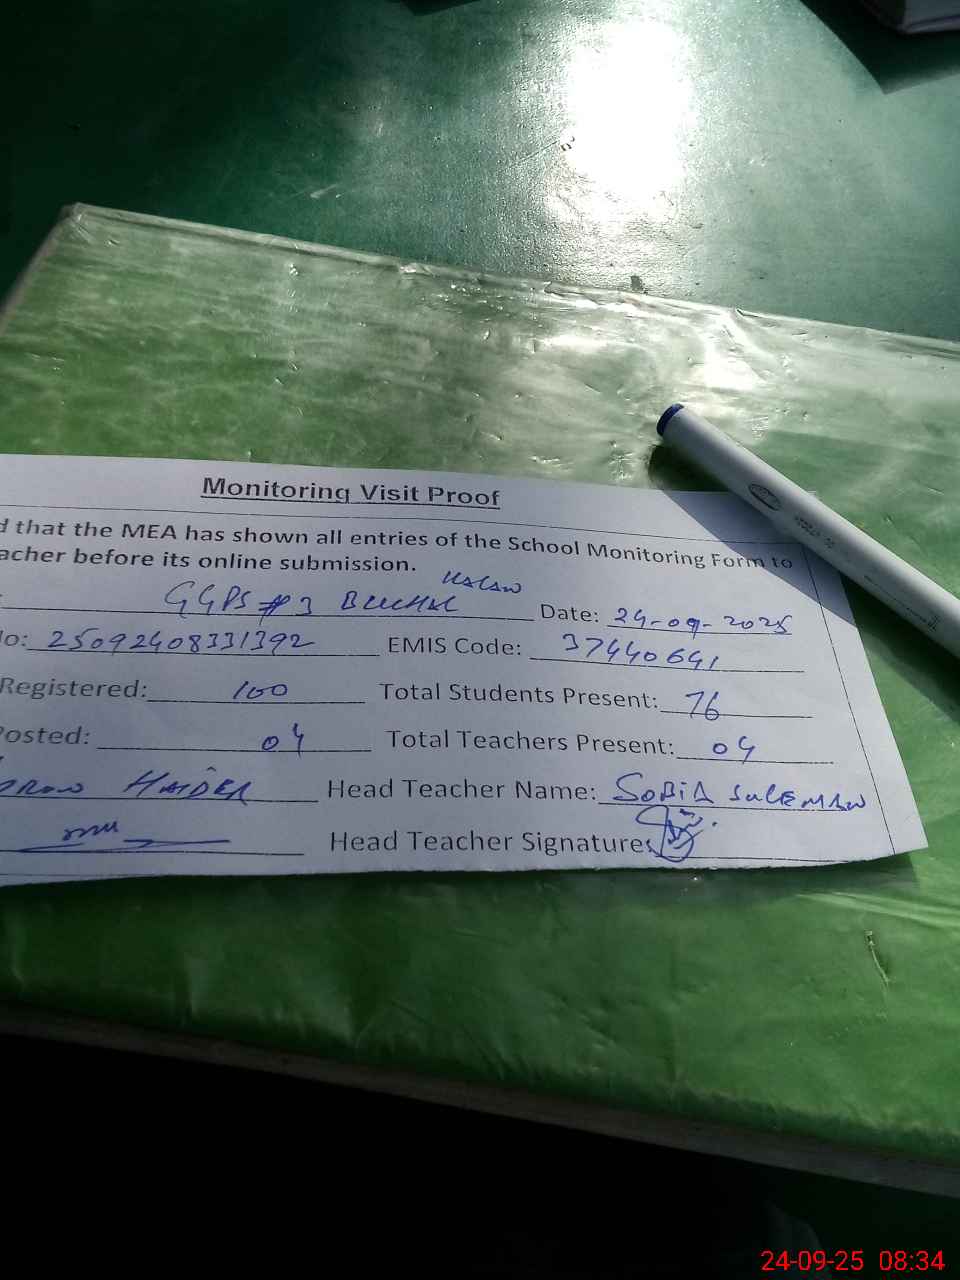 Monitoring Visit Proof
d that the MEA has shown all entries of the School Monitoring Form to
acher before its online submission.
KALAN
GGPS # 3 BUCHAL Date: 24-09-2025
No: 25092408331392 EMIS Code: 37440641
Registered: 100 Total Students Present: 76
Posted: 04 Total Teachers Present: 04
HAIDER Head Teacher Name: SOBIA SULEMAN
Head Teacher Signature:
24-09-25 08:34